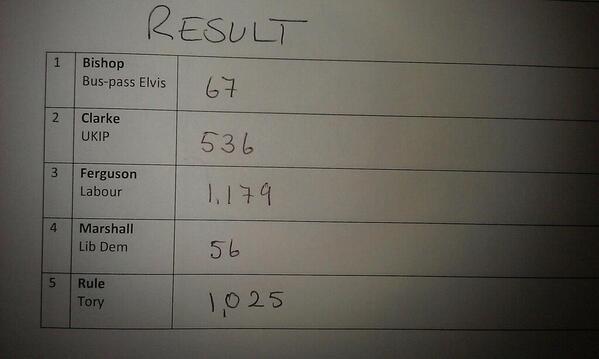 RESULT
1 Bishop
Bus-pass Elvis 67
2 Clarke
UKIP 536
3 Ferguson
Labour 1,179
4 Marshall
Lib Dem 56
5 Rule
Tory 1,025